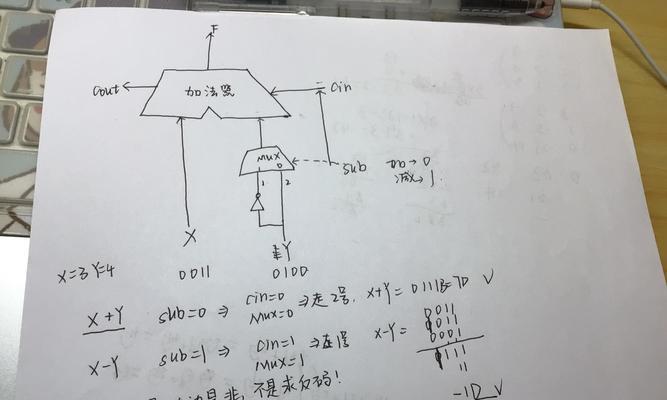 F
Cout
加法器
Cin
MUX
0
sub
加→0
减→1.
1
2
X
Y
X=3 Y=4
0011
0100
X+Y
sub=0 ⇒
Cin=0
MUX=0
⇒走2号.
X+Y=0111B=7D
√
X-Y
sub=1 ⇒
Cin=1
MUX=1
⇒走1号
X-Y=
0011
1011
0001
1111
11
-1D √
是非, 不是求反码!